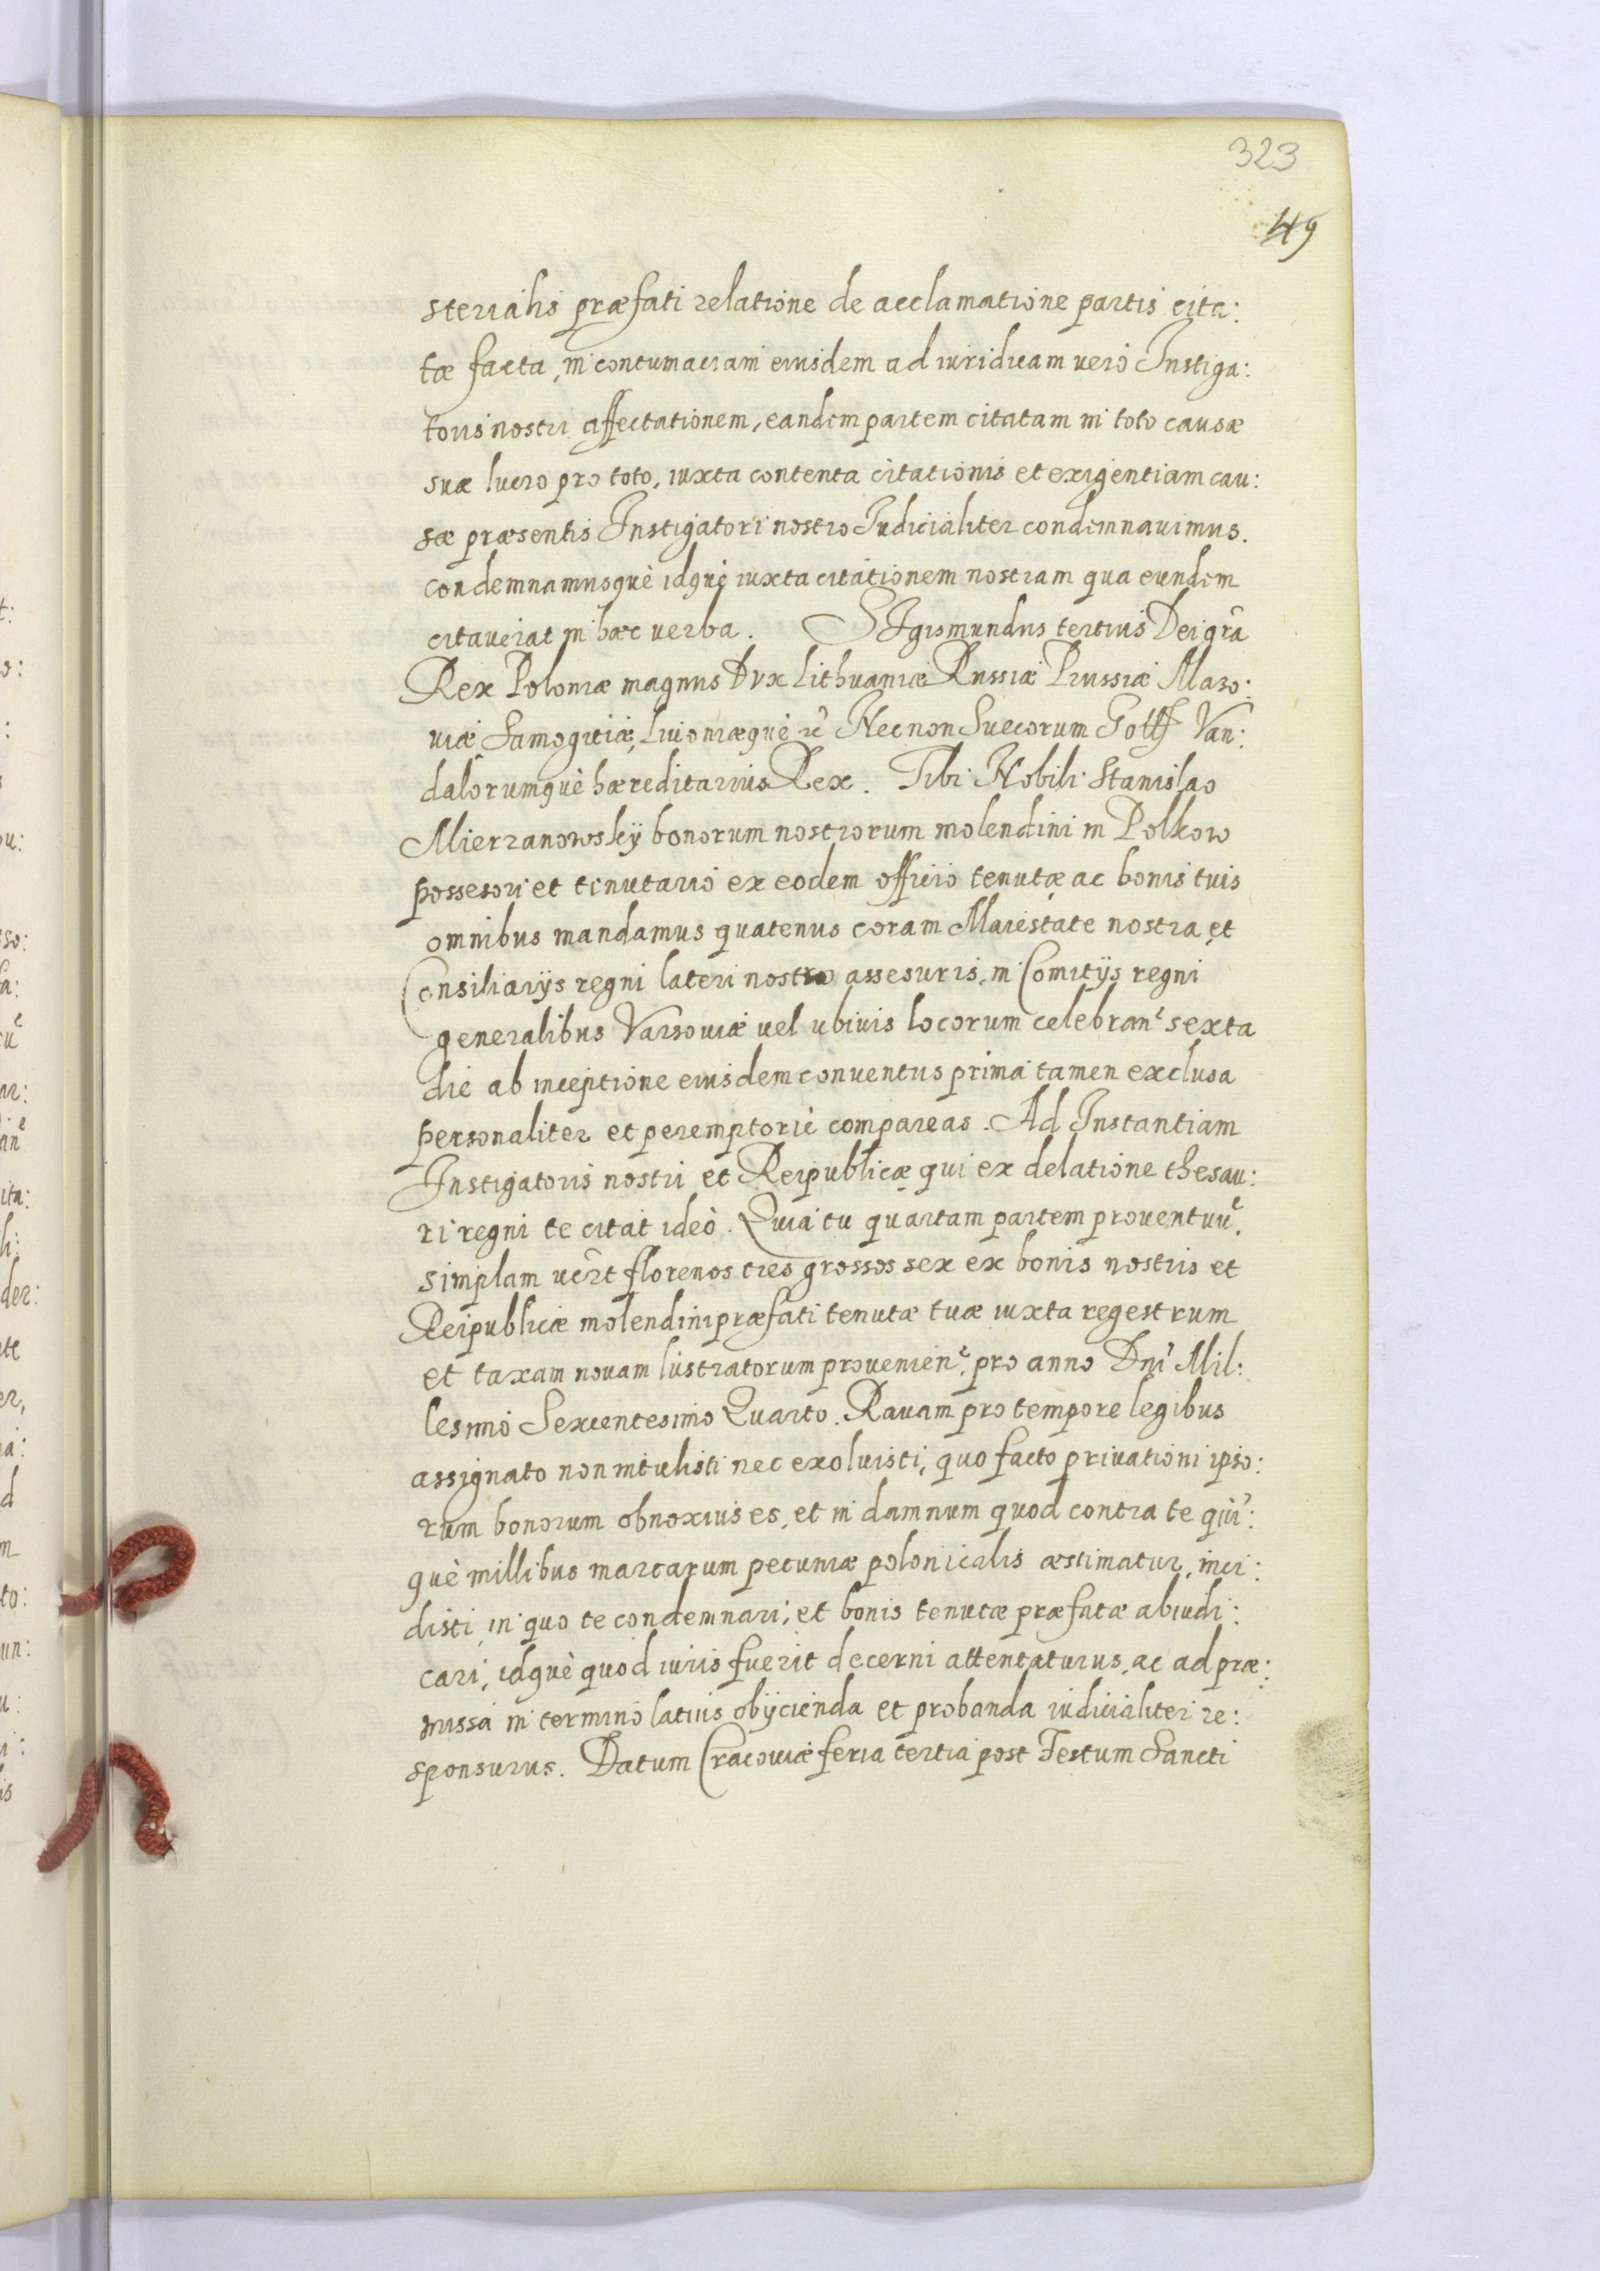 323
49
sterialis præfati relatione de acclamatione partis cita:
tæ facta, in contumaciam eiusdem ad iuridicam verò Instiga:
toris nostri affectationem, eandem partem citatam in toto causæ
suæ lucro pro toto, iuxta contenta citationis et exigentiam cau:
sæ præsentis Instigatori nostro Iudicialiter condemnauimus.
condemnamusquè idquè iuxta citationem nostram qua eundem
citauerat in hæc verba. SIgismundus tertius Dei grã
Rex Poloniæ magnus Dvx Lithuaniæ Russiæ Prussiæ Maso:
uiæ Samogitiæ, Liuoniæquè ꝛc̃ Necnon Suecorum Gottf Van:
dalorumquè hæreditarius Rex. Tibi Nobili Stanislao
Mierzanowskÿ bonorum nostrorum molendini in Polkow
possesori et tenutario ex eodem officio tenutæ ac bonis tuis
omnibus mandamus quatenus coram Maiestate nostra et
Consiliarijs regni lateri nostro assesuris, in Comitijs regni
generalibus Varsouiæ uel ubiuis locorum celebran͛ sexta
die ab inceptione eiusdem conuentus prima tamen exclusa
personaliter et peremptoriè compareas. Ad Instantiam
Instigatoris nostri et Reipublicæ qui ex delatione thesau:
ri regni te citat ideò. Quia tu quartam partem prouentuũ,
simplam uc̃rt florenos tres grossos sex ex bonis nostris et
Reipublicæ molendini præfati tenutæ tuæ iuxta regestrum
et taxam nouam lustratorum prouenien͛, pro anno Dnĩ Mil:
lesimo Sexcentesimo Quarto. Rauam pro tempore legibus
assignato non intulisti nec exoluisti, quo facto priuationi ipso:
rum bonorum obnoxius es, et in damnum quod contra te qũi:
què millibus marcarum pecuniæ polonicalis æstimatur, inci:
disti, in quo te condemnari, et bonis tenutæ præfatæ abiudi:
cari, idquè quod iuris fuerit decerni attentaturus, ac ad præ:
missa in termino latius obijcienda et probanda iudicialiter re:
sponsurus. Datum Cracouiæ feria tertia post Festum Sancti